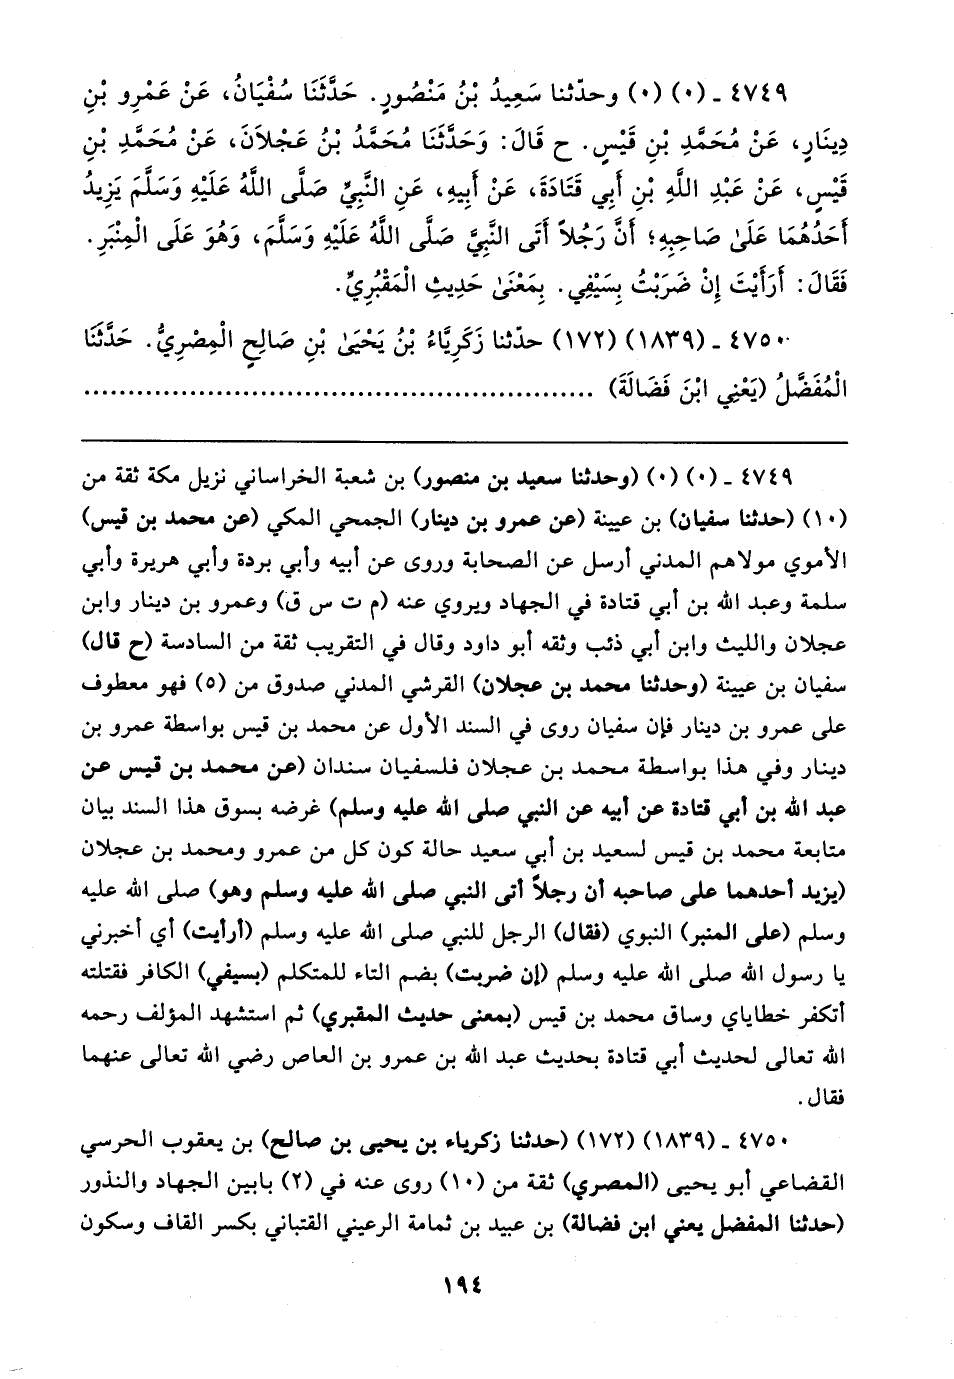 ٤٧٤٩ ـ (٠) (٠) وحدّثنا سَعِيدُ بْنُ مَنْصُورٍ. حَدَّثَنَا سُفْيَانُ، عَنْ عَمْرِو بْنِ
دِينَارٍ، عَنْ مُحَمَّدِ بْنِ قَيْسٍ. ح قَالَ: وَحَدَّثَنَا مُحَمَّدُ بْنُ عَجْلاَنَ، عَنْ مُحَمَّدِ بْنِ
قَيْسٍ، عَنْ عَبْدِ اللَّهِ بْنِ أَبِي قَتَادَةَ، عَنْ أَبِيهِ، عَنِ النَّبِيِّ صَلَّى اللَّهُ عَلَيْهِ وَسَلَّمَ يَزِيدُ
أَحَدُهُمَا عَلَىٰ صَاحِبِهِ؛ أَنَّ رَجُلاً أَتَى النَّبِيَّ صَلَّى اللَّهُ عَلَيْهِ وَسَلَّمَ، وَهُوَ عَلَى الْمِنْبَرِ.
فَقَالَ: أَرَأَيْتَ إِنْ ضَرَبْتُ بِسَيْفِي. بِمَعْنَىٰ حَدِيثِ الْمَقْبُرِيِّ.
٤٧٥٠ ـ (١٨٣٩) (١٧٢) حدّثنا زَكَرِيَّاءُ بْنُ يَحْيَىٰ بْنِ صَالِحٍ الْمِصْرِيُّ. حَدَّثَنَا
الْمُفَضَّلُ (يَعْنِي ابْنَ فَضَالَةَ) ..........................................................
٤٧٤٩ ـ (٠) (٠) (وحدثنا سعيد بن منصور) بن شعبة الخراساني نزيل مكة ثقة من
(١٠) (حدثنا سفيان) بن عيينة (عن عمرو بن دينار) الجمحي المكي (عن محمد بن قيس)
الأموي مولاهم المدني أرسل عن الصحابة وروى عن أبيه وأبي بردة وأبي هريرة وأبي
سلمة وعبد الله بن أبي قتادة في الجهاد ويروي عنه (م ت س ق) وعمرو بن دينار وابن
عجلان والليث وابن أبي ذئب وثقه أبو داود وقال في التقريب ثقة من السادسة (ح قال)
سفيان بن عيينة (وحدثنا محمد بن عجلان) القرشي المدني صدوق من (٥) فهو معطوف
على عمرو بن دينار فإن سفيان روى في السند الأول عن محمد بن قيس بواسطة عمرو بن
دينار وفي هذا بواسطة محمد بن عجلان فلسفيان سندان (عن محمد بن قيس عن
عبد الله بن أبي قتادة عن أبيه عن النبي صلى الله عليه وسلم) غرضه بسوق هذا السند بيان
متابعة محمد بن قيس لسعيد بن أبي سعيد حالة كون كل من عمرو ومحمد بن عجلان
(يزيد أحدهما على صاحبه أن رجلاً أتى النبي صلى الله عليه وسلم وهو) صلى الله عليه
وسلم (على المنبر) النبوي (فقال) الرجل للنبي صلى الله عليه وسلم (أرأيت) أي أخبرني
يا رسول الله صلى الله عليه وسلم (إن ضربت) بضم التاء للمتكلم (بسيفي) الكافر فقتلته
أتكفر خطاياي وساق محمد بن قيس (بمعنى حديث المقبري) ثم استشهد المؤلف رحمه
الله تعالى لحديث أبي قتادة بحديث عبد الله بن عمرو بن العاص رضي الله تعالى عنهما
فقال.
٤٧٥٠ ـ (١٨٣٩) (١٧٢) (حدثنا زكرياء بن يحيى بن صالح) بن يعقوب الحرسي
القضاعي أبو يحيى (المصري) ثقة من (١٠) روى عنه في (٢) بابين الجهاد والنذور
(حدثنا المفضل يعني ابن فضالة) بن عبيد بن ثمامة الرعيني القتباني بكسر القاف وسكون
١٩٤